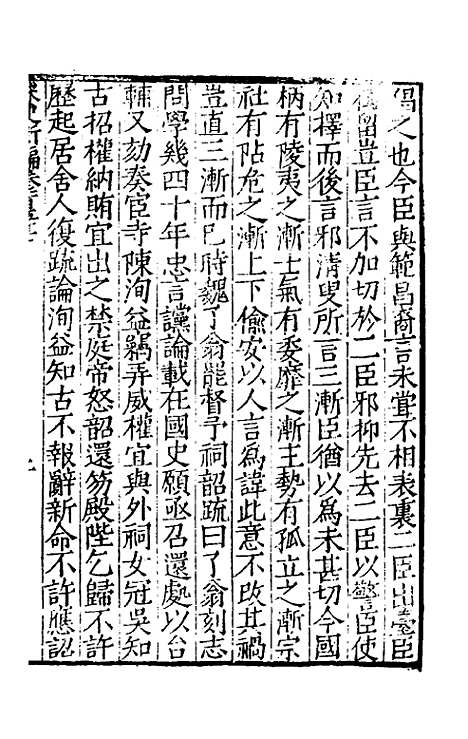 倡之也今臣與範昌裔言未嘗不相表裏二臣出臺臣
獨留豈臣言不加切於二臣邪抑先去二臣以警臣使
知擇而後言邪清叟所言三漸臣猶以爲未甚切今國
柄有陵夷之漸士氣有委靡之漸主勢有孤立之漸宗
社有阽危之漸上下偷安以人言爲諱此意不改其禍
豈直三漸而已時魏了翁罷督予祠韶疏曰了翁刻志
問學幾四十年忠言讜論載在國史願亟召還處以台
輔又劾奏宦寺陳洵益竊弄威權宜與外祠女冠吳知
古招權納賄宜出之禁庭帝怒韶還笏殿陛乞歸不許
歷起居舍人復疏論洵益知古不報辭新命不許應詔